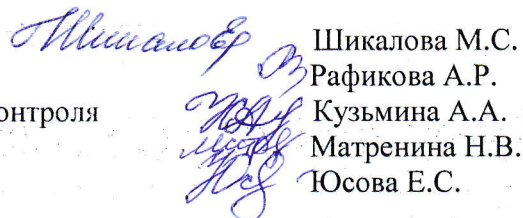 Шикалова М.С.
Рафикова А.Р.
онтроля Кузьмина А.А.
Матренина Н.В.
Юсова Е.С.